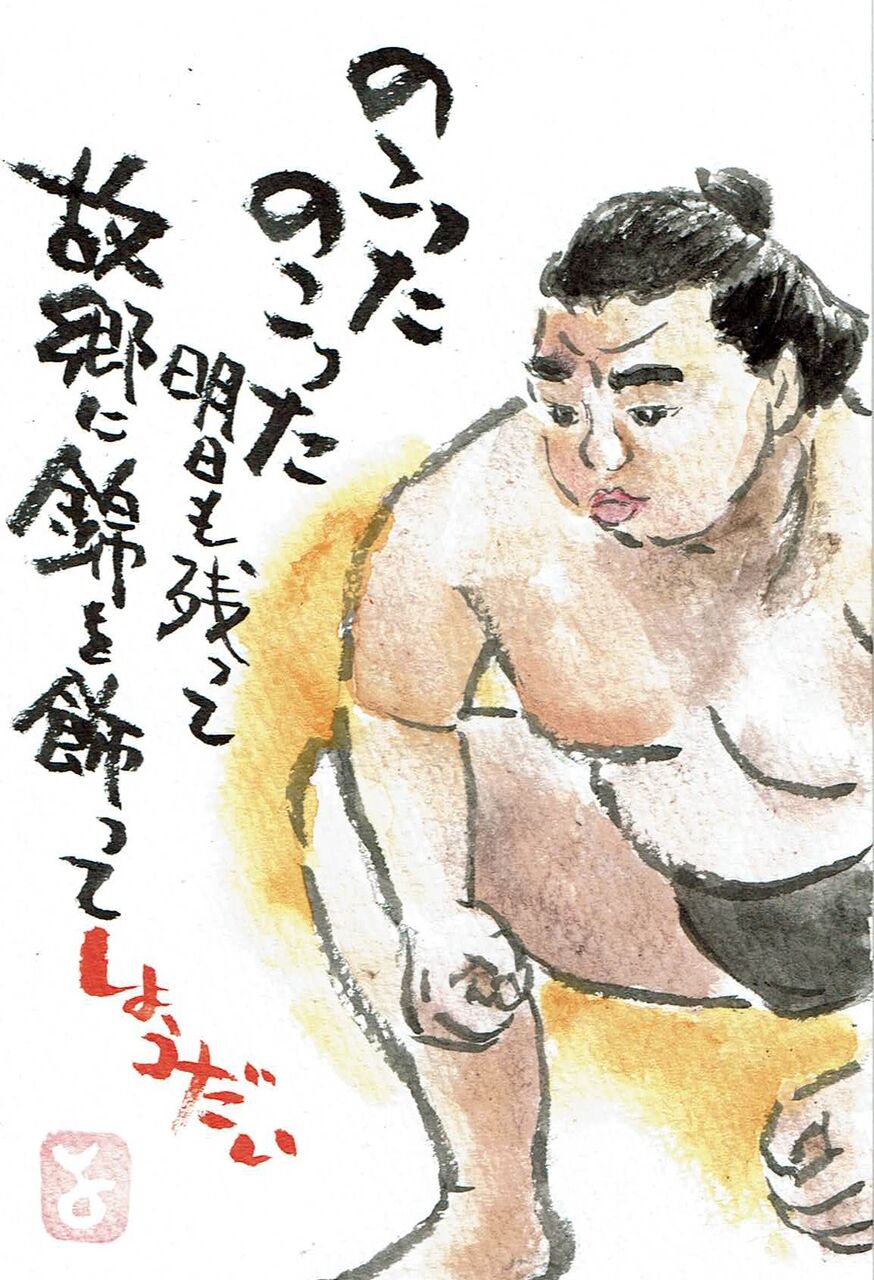 のこった
のこった
明日も残って
故郷に錦を飾って
しょうだい
と